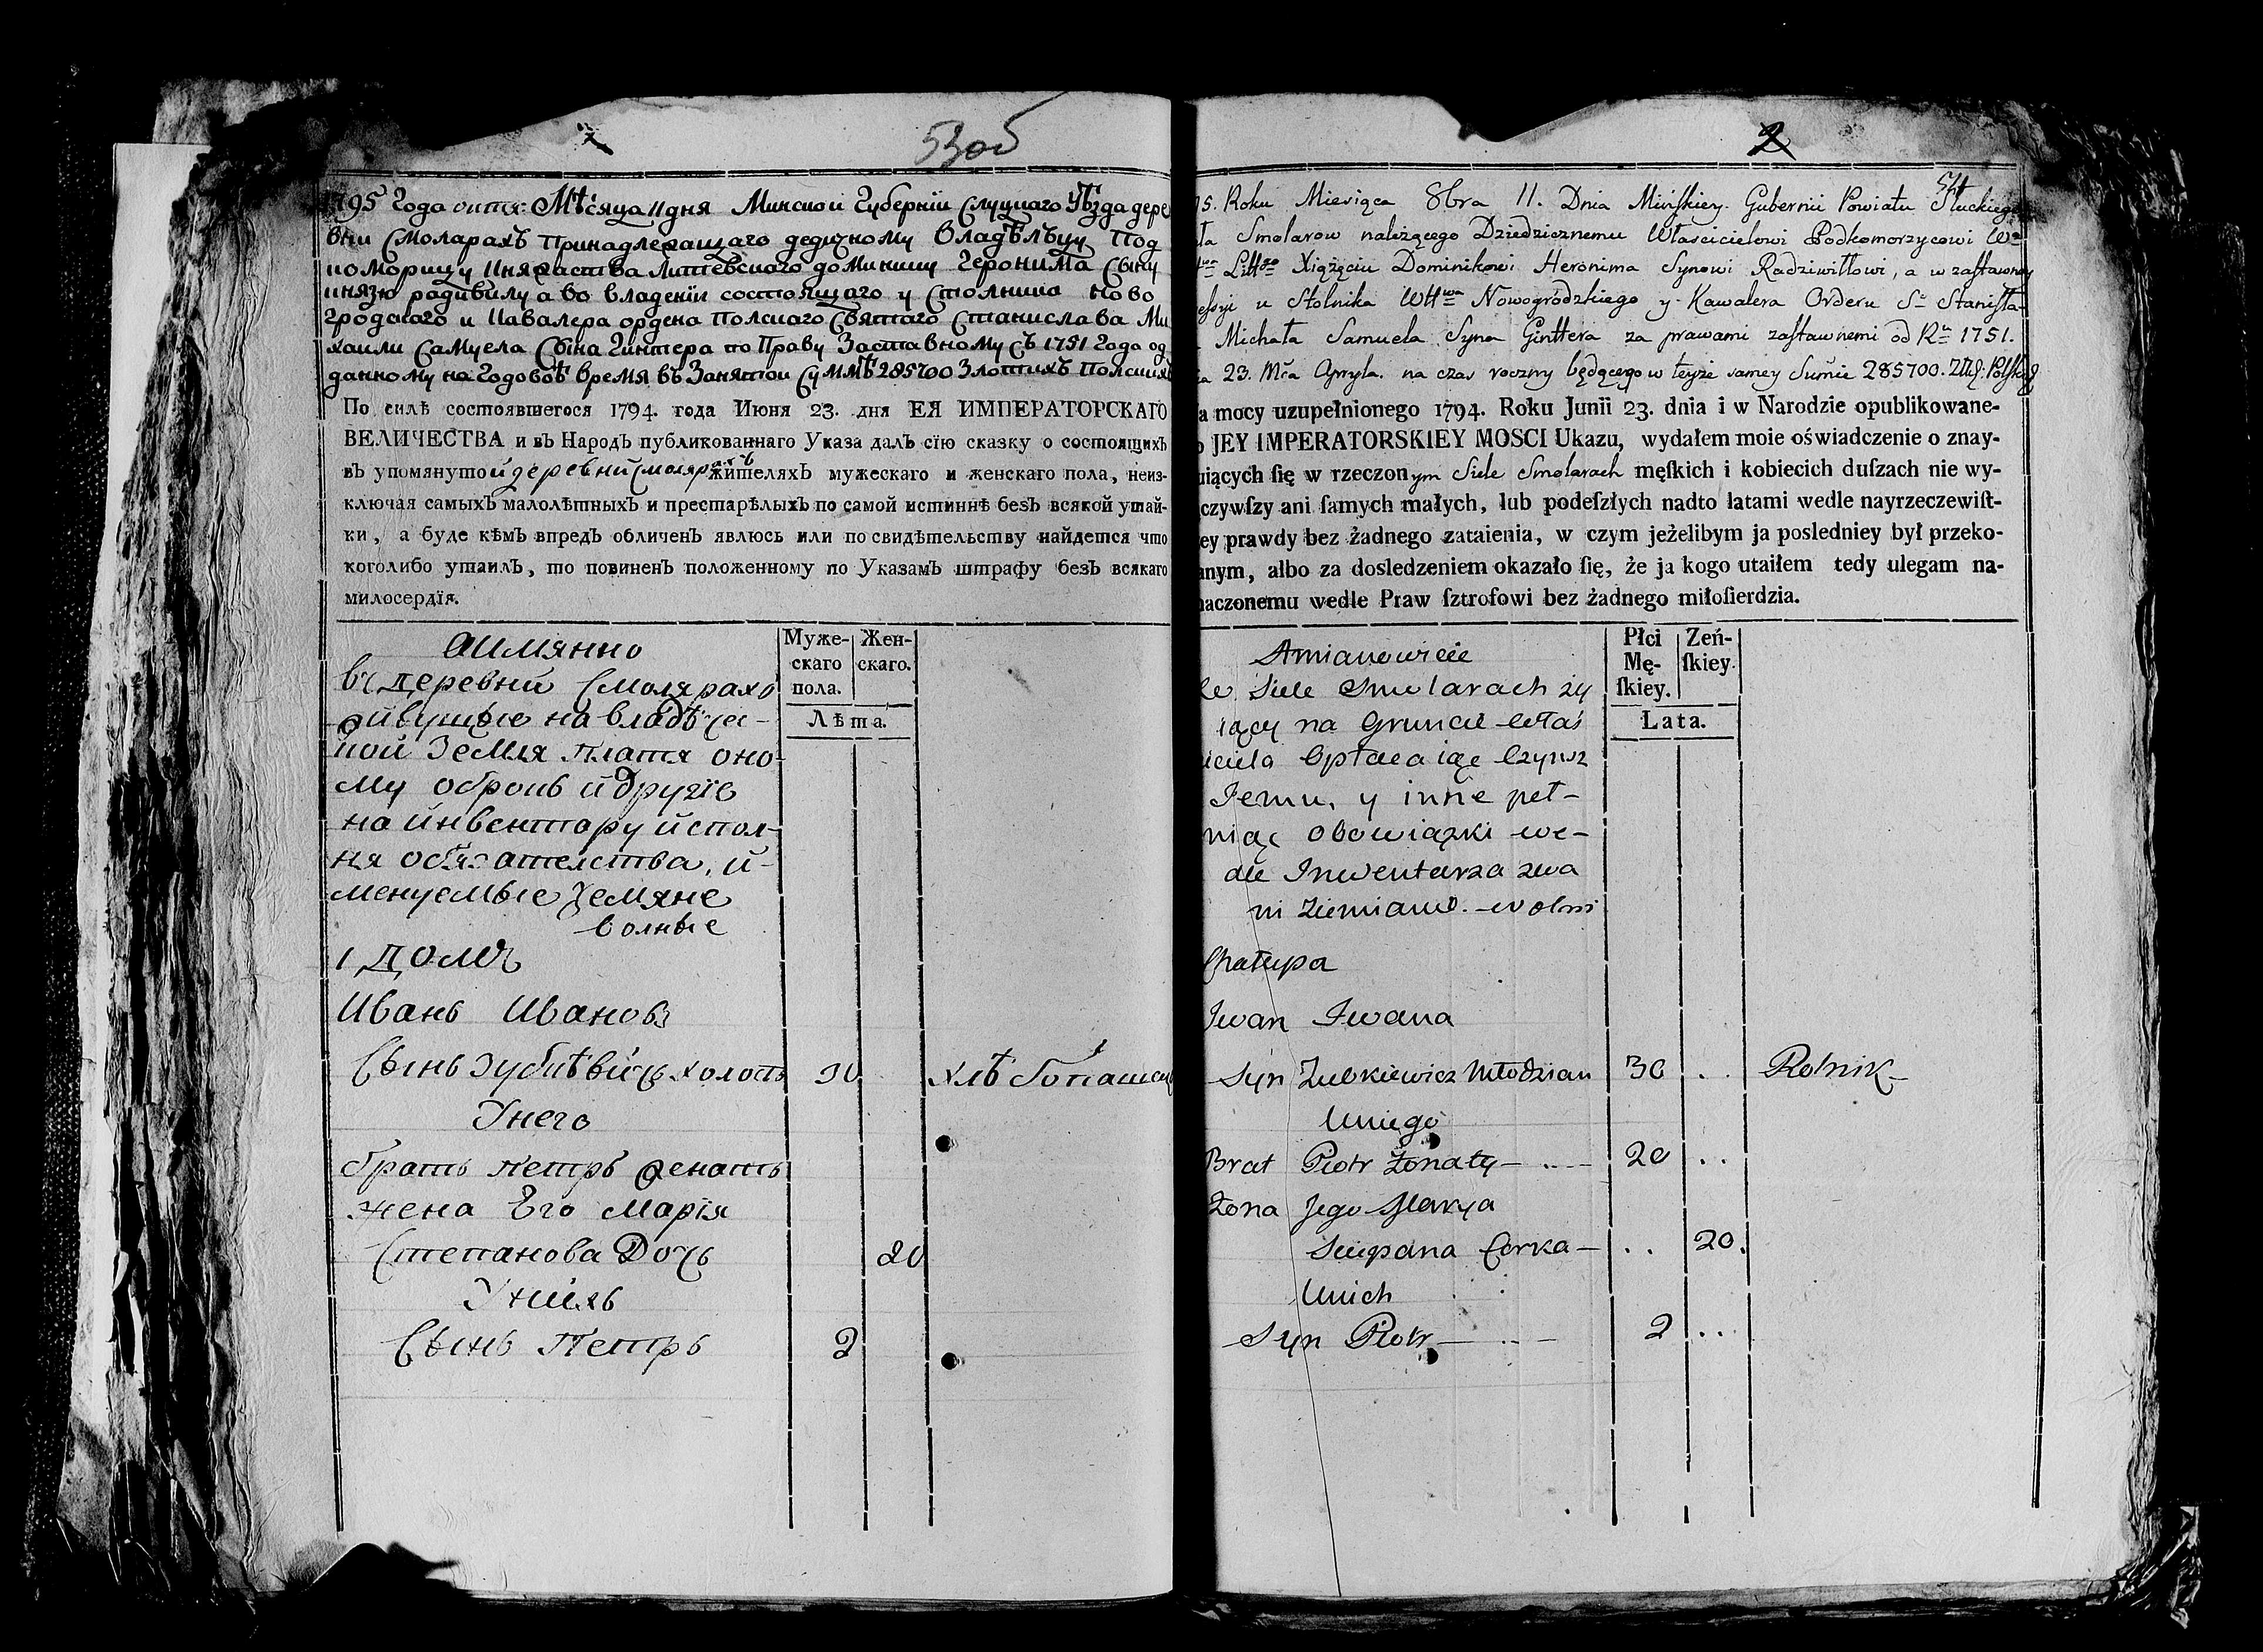 53об
1795 Года октя: Мѣсяца 11 дня Минской Губернїи Слуцкаго Уѣзда дере
вни Смоларахъ принадлежащаго дедичному Владѣлъцу Под
коморицу Княжества Литевскаго доминику Геронима Сыну
князю радивилу а во владенїи состоящаго у Столника Ново
гродскаго и Кавалера ордена полскаго Святаго Станислава Ми
хаили Самуела Сына Гинтера по Праву Заставному съ 1751 Года од
данному на Годовоѣ время въ Занятой Суммѣ 285700 Злотихъ Полских
По силѣ состоявшегося 1794. года Июня 23. дня ЕЯ ИМПЕРАТОРСКАГО
ВЕЛИЧЕСТВА и въ Народъ публикованнаго Указа далъ сїю сказку о состоящихъ
въ упомянутой деревни Смолярахъ жителяхъ мужескаго и женскаго пола, неиз-
ключая самыхъ малолѣтныхъ и престарѣлыхъ по самой истиннѣ безъ всякой утай-
ки, а буде кѣмъ впредъ обличенъ явлюсь или по свидѣтельству найдется что
коголибо утаилъ, то повиненъ положенному по Указамъ штрафу безъ всякаго
милосердїя.
Муже-
скаго
пола.
Жен-
скаго.
Лѣта.
Аимянно
въ деревни Смоляра​хъ
живущые на владѣчес-
кой Земля платя оно-
му оброкъ и другїе
на инвентару испол-
ня обязателства, и-
менуемые Земяне
волные
1 Домъ
Иванъ Ивановъ
Сынъ Зубкѣвичъ холостъ 30 хлѣбопашецъ
Унего
братъ Петръ женатъ
жена Его Марїя
Степанова Дочь 20
Унихъ
Сынъ Петръ 2
2
54
95. Roku Miesiąca 8bra 11. Dnia Minſkiey Gubernii Powiatu Słuckiego
ła Smolarow należącego Dziedzicznemu Właścicielowi Podkomorzycowi W
Litt​go Xiążęciu Dominikowi Heronima Synowi Radziwiłłowi, a w zaſtawney
eſsyi u Stolnika Wttwa Nowogródzkiego y Kawalera Orderu S Staniſła-
Michała Samuela Syna Ginttera za prawami zaſtawnemi od Rku 1751.
ia 23. Mca Apryla. na czas roczny będącego w teyże samey Sum̃ie 285700. Zł: Polſkich
a mocy uzupełnionego 1794. Roku Junii 23. dnia i w Narodzie opublikowane-
o JEY IMPERATORSKIEY MOSCI Ukazu, wydałem moie oświadczenie o znay-
uiących ſię w rzeczonym Siele Smolarach męſkich i kobiecich duſzach nie wy-
czywſzy ani ſamych małych, lub podeſzłych nadto latami wedle nayrzeczewiſt-
ey prawdy bez żadnego zataienia, w czym jeżelibym ja posledniey był przeko-
anym, albo za dosledzeniem okazało ſię, że ja kogo utaiłem tedy ulegam na-
naczonemu wedle Praw ſztrofowi bez żadnego miłoſierdzia.
Płci
Mę-
ſkiey.
Zeń-
ſkiey.
Lata.
Amianowicie
le Siele Smolarach ży
iący na Gruncie Właś
iciela Opłacaiąc Czynsz
Jemu, y inne peł-
niąc obowiązki we-
dle Inwentarza zwa
ni Ziemianie wolni
Chałupa
Iwan Iwana
Syn Zubkiewicz Młodzian 30 . . Rolnik
Uniego
Brat Piotr Żonaty 20 . .
Żona Jego Marya
Sciepana Corka . . 20.
Unich
Syn Piotr 2 . . .